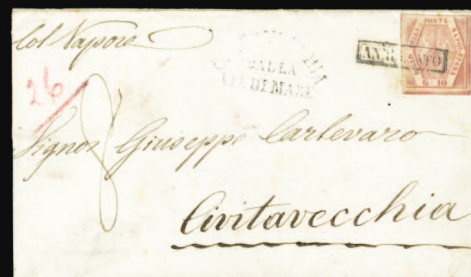 Col Vapore
DALLA
VIA DI MARE
ANNULLATO
G. 10
26
Signor Giuseppe Carlevaro
Civitavecchia